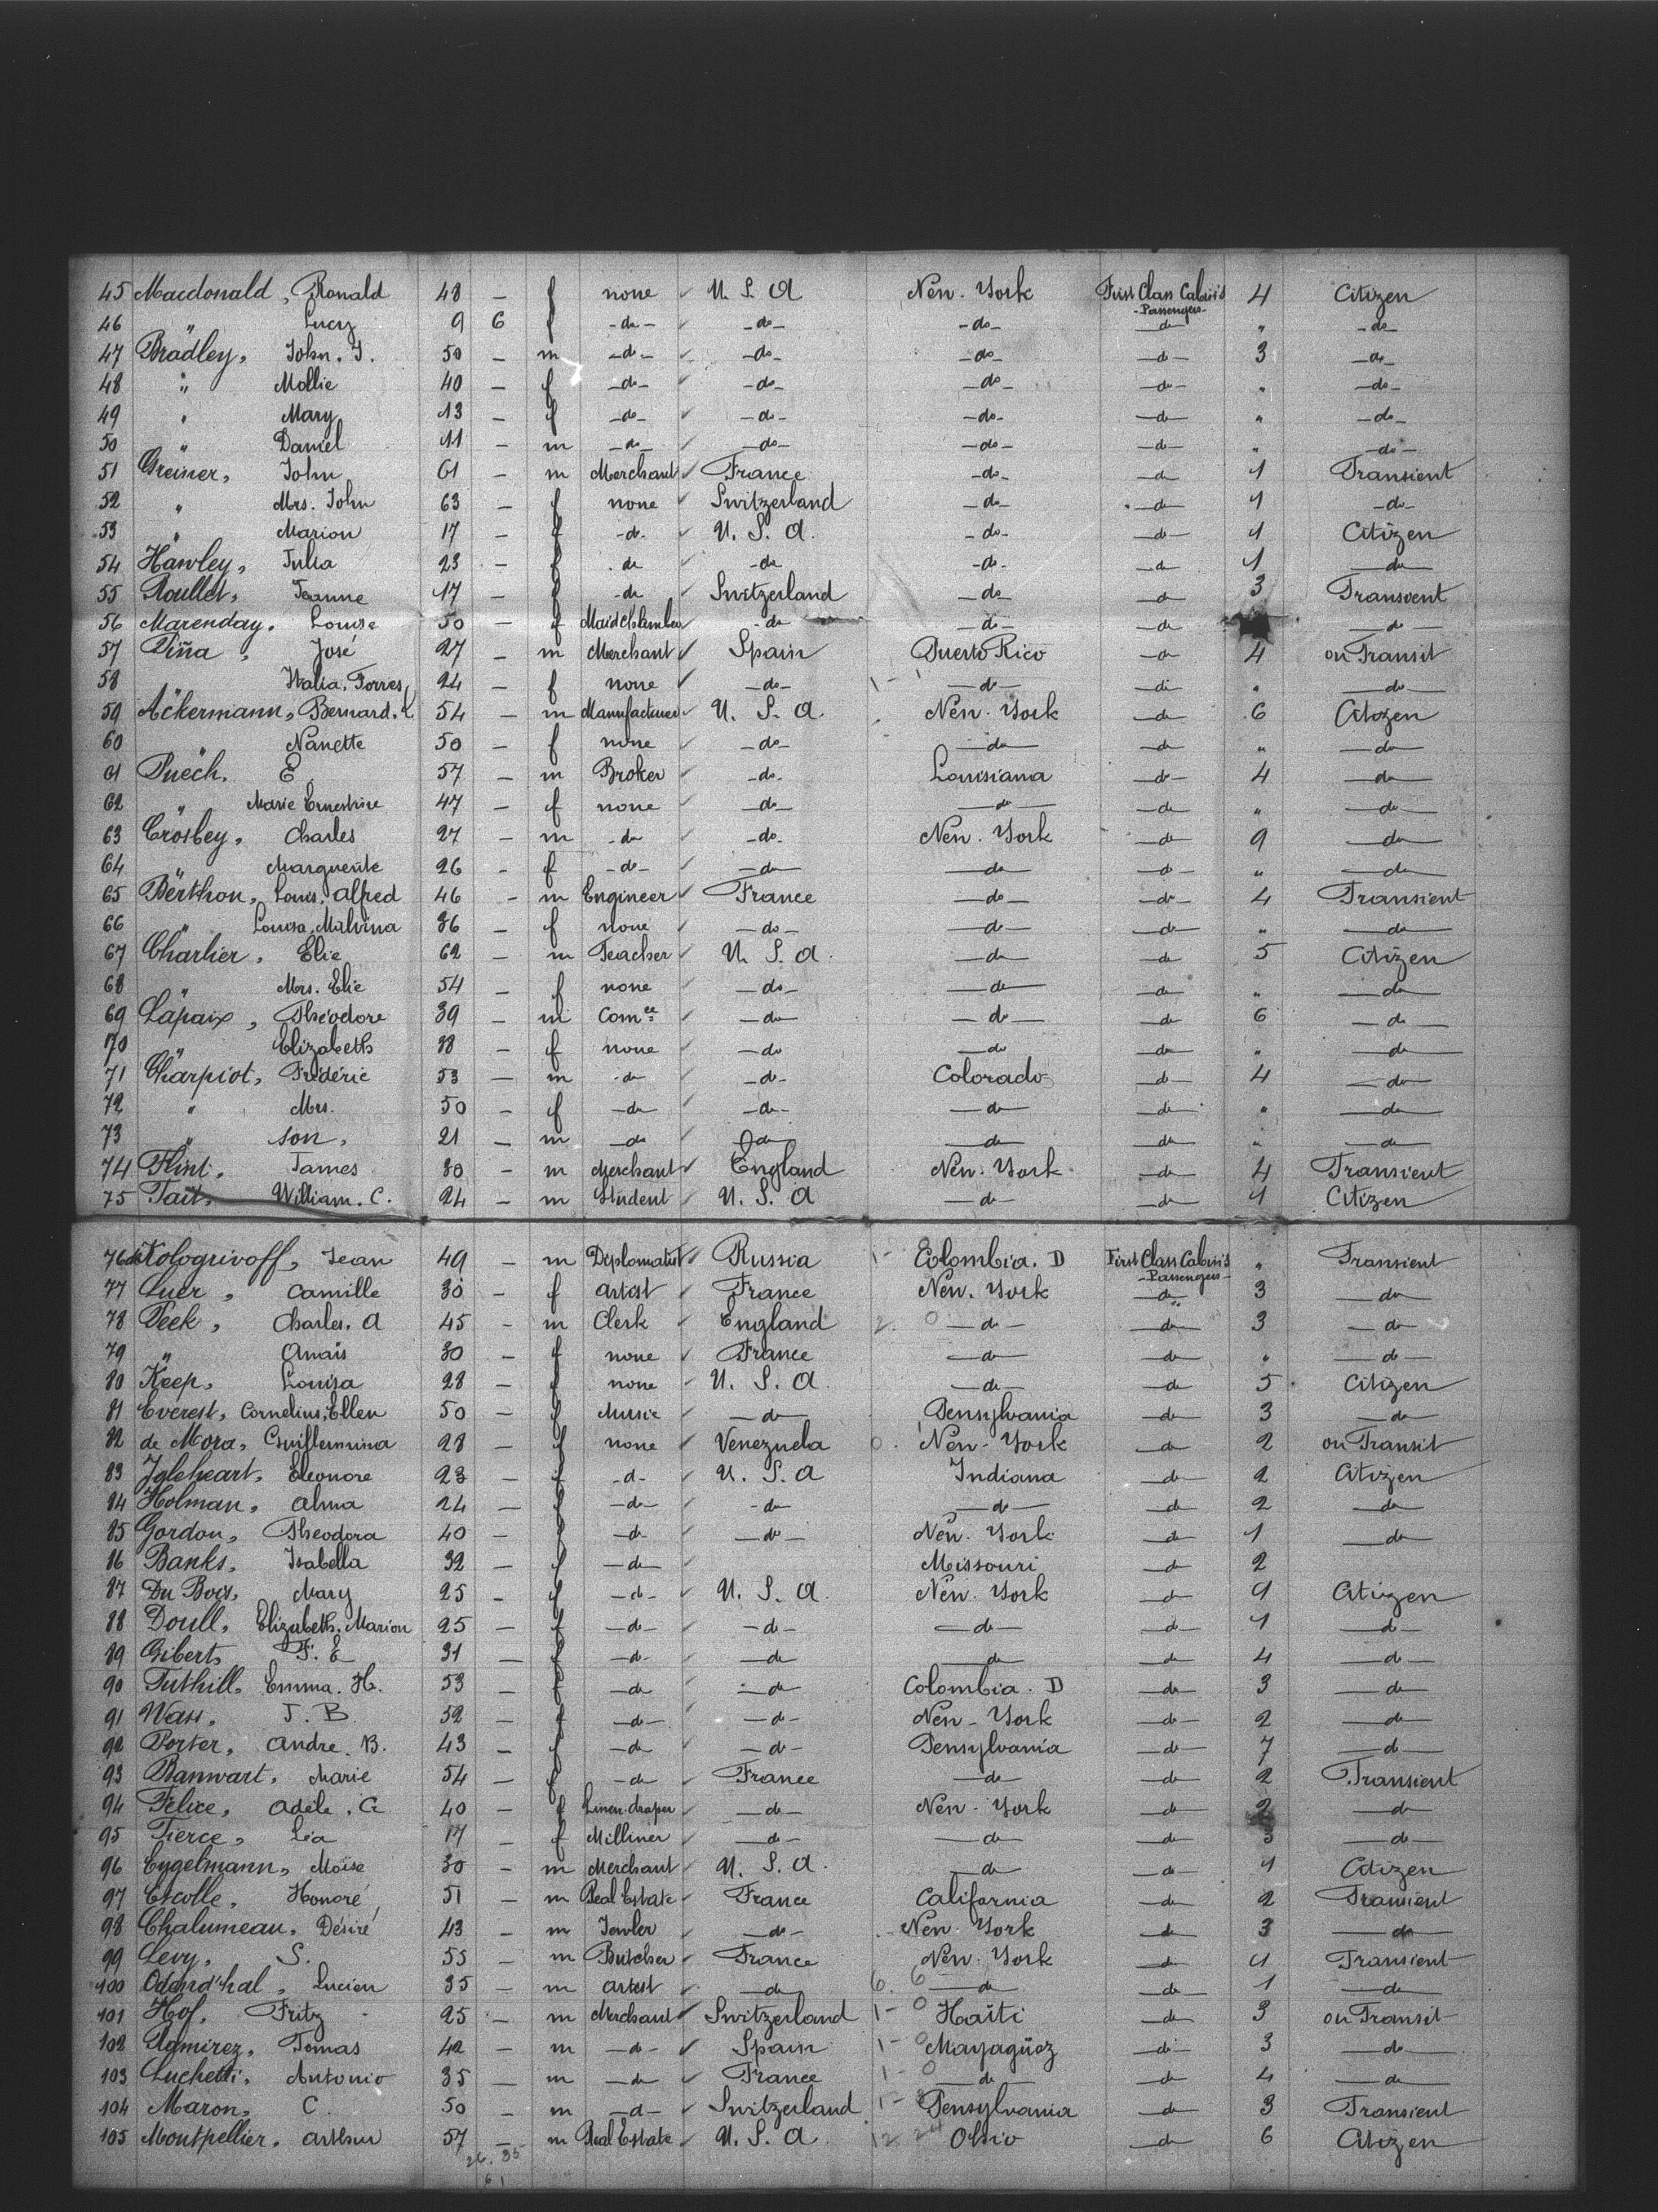 45 Macdonald, Ronald 48 – f none ✓ U. S. A New. York First Class Cabin's -Passengers- 4 Citizen
46 " Lucy 9 6 f -do- ✓ -do- -do- do " -do-
47 Bradley, John. J. 50 – m -do- ✓ -do- -do- -do- 3 -do-
48 " Mollie 40 – f -do- ✓ -do- -do- -do- " -do-
49 " Mary 13 – f -do- ✓ -do- -do- -do- " -do-
50 " Daniel 11 – m -do- ✓ -do- -do- -do- " -do-
51 Greiner, John 61 – m Merchant ✓ France -do- -do 1 Transient
52 " Mrs. John 63 – f none ✓ Switzerland -do- -do- 1 -do-
53 " Marion 17 – f -do- ✓ U. S. A. -do- -do- 1 Citizen
54 Hawley, Julia 23 – f do ✓ -do -do- -do 1 -do-
55 Roullet, Jeanne 17 – f -do ✓ Switzerland -do- -do 3 Transient
56 Marenday, Louise 50 – f Maidchamber -do -do- -do -do-
57 Piña, José 27 – m Merchant ✓ Spain Puerto Rico -do 4 on Transit
58 Italia. Torres 24 – f none ✓ -do- 1- -do- -do " -do-
59 Ackermann, Bernard. L 54 – m Manufacturer ✓ U. S. A. New. York -do 6 Citizen
60 " Nanette 50 – f none ✓ -do- -do- -do " -do-
61 Puech. E 57 – m Broker ✓ -do- Louisiana -do- 4 -do-
62 " Marie Ernestine 47 – f none ✓ -do- -do- -do " -do-
63 Crosbey, Charles 27 – m -do ✓ -do- New. York -do 9 -do-
64 " Marguerite 26 – f -do- ✓ -do- -do- -do- " -do-
65 Berthon, Louis, Alfred 46 – m Engineer ✓ France -do- -do- 4 Transient
66 " Louisa, Malvina 36 – f none ✓ -do- -do- -do- " -do-
67 Charlier, Elie 62 – m Teacher ✓ U. S. A. -do- -do 5 Citizen
68 " Mrs. Elie 54 – f none ✓ -do- -do- -do " -do-
69 Lapaix, Théodore 39 – m Comce ✓ -do- -do- -do 6 -do-
70 " Elizabeth 38 – f none ✓ -do -do- -do- " -do-
71 Charpiot, Frédéric 53 – m -do ✓ -do- Colorado -do 4 -do-
72 " Mrs. 50 – f -do ✓ -do- -do- -do- " -do-
73 " son, 21 – m -do ✓ -do -do- -do- " -do-
74 Flint, James 30 – m Merchant ✓ England New. York -do 4 Transient
75 Tait, William. C. 24 – m Student ✓ U. S. A -do- -do 1 Citizen
76 de Kologrivoff, Jean 49 – m Diplomatist ✓ Russia 1- Colombia. D First Class Cabin's -Passengers- " Transient
77 Luer, Camille 30 – f artist ✓ France New. York -do- 3 -do-
78 Peek, Charles. A 45 – m Clerk ✓ England 2. 0 -do- -do- 3 -do-
79 " Anaïs 30 – f none ✓ France -do- -do " -do-
80 Keep, Louisa 28 – f none ✓ U. S. A. -do- -do 5 Citizen
81 Everest, Cornelius, Ellen 50 – f Music ✓ -do- Pensylvania -do 3 -do-
82 de Mora, Guillermina 28 – f none ✓ Venezuela 0. New-York -do 2 on Transit
83 Igleheart, Eleonore 23 – f -d- ✓ U. S. A Indiana -do- 2 Citizen
84 Holman, Alma 24 – f -do- ✓ -do- -do- -do- 2 -do-
85 Gordon, Theodora 40 – f -do ✓ -do- New. York -do 1 -do
86 Banks, Isabella 32 – f -do- Missouri -do 2
87 Du Bois, Mary 25 – f -do- ✓ U. S. A New. York -do 9 Citizen
88 Doull, Elizabeth. Marion 25 – f -do- ✓ -do- -do- -do- 1 -do-
89 Gibert, F. E 31 – f -do- ✓ -do -do -do 4 -do-
90 Tuthill, Emma. H. 53 – f -do ✓ -do Colombia. D -do- 3 -do
91 Wass, J. B 52 – f -do- ✓ -do- New-York -do- 2 -do-
92 Porter, Andre. B. 43 – f -do ✓ -do- Pensylvania -do- 7 -do-
93 Banwart, Marie 54 – f -do ✓ France -do- -do- 2 Transient
94 Felice, Adèle. C 40 – f Linen-draper ✓ -do- New. York -do 2 -do-
95 Fierce, Lia 17 – f Milliner ✓ -do- -do- -do 3 -do-
96 Engelmann, Moïse 30 – m Merchant ✓ U. S. A. -do -do- 1 Citizen
97 Escolle, Honoré 51 – m Real Estate ✓ France California -do 2 Transient
98 Chalumeau, Désiré 43 m Jewler ✓ -do- New. York -do 3 -do-
99 Levy, S. 55 – m Butcher ✓ France New. York -do 1 Transient
100 Lucien 35 – m artist ✓ -do 6. 6 -do -do 1 -do-
101 Hof, Fritz 25 – m Merchant ✓ Switzerland 1- 0 Haïti -do 3 on Transit
102 Ramirez, Tomas 42 – m -do- ✓ Spain 1- 0 Mayagüez -do 3 -do-
103 Luchetti, Antonio 35 – m -do ✓ France 1- 0 -do -do- 4 -do-
104 Maron, C. 50 – m -d- ✓ Switzerland 1- Pensylvania -do 3 Transient
105 Montpellier, Arthur 57 – m Real Estate ✓ U. S. A 12 24 Ohio -do 6 Citizen
26. 35
61